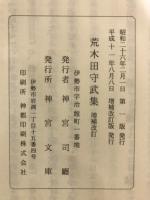 昭和二十六年二月一日 第一版発行
平成十一年八月八日 増補改訂版発行
荒木田守武集 増補改訂
伊勢市宇治館町一番地
発行者 神宮司廳
発行所 神宮文庫
伊勢市岩渕一丁目十五番四号
印刷所 神都印刷株式会社